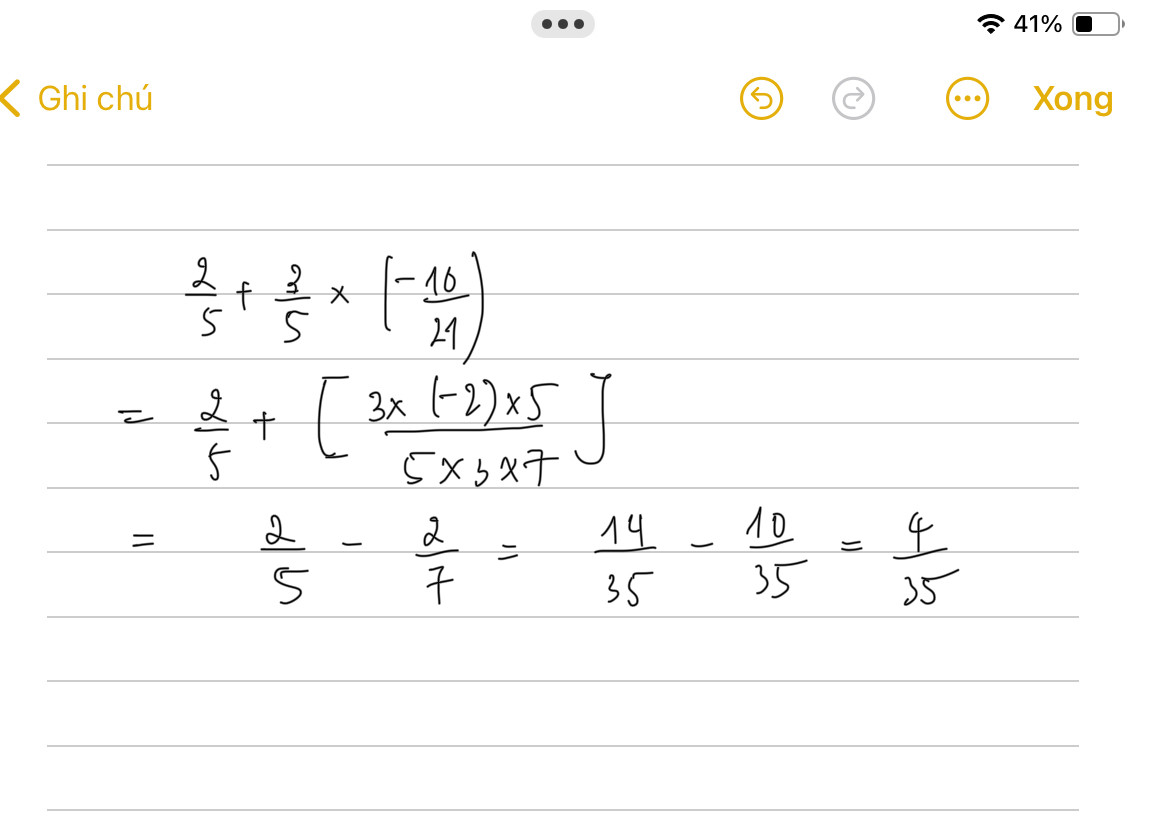 41%
Ghi chú Xong
2/5 + 3/5 × (-10/21)
= 2/5 + [3 × (-2) × 5 / 5 × 3 × 7]
= 2/5 - 2/7 = 14/35 - 10/35 = 4/35